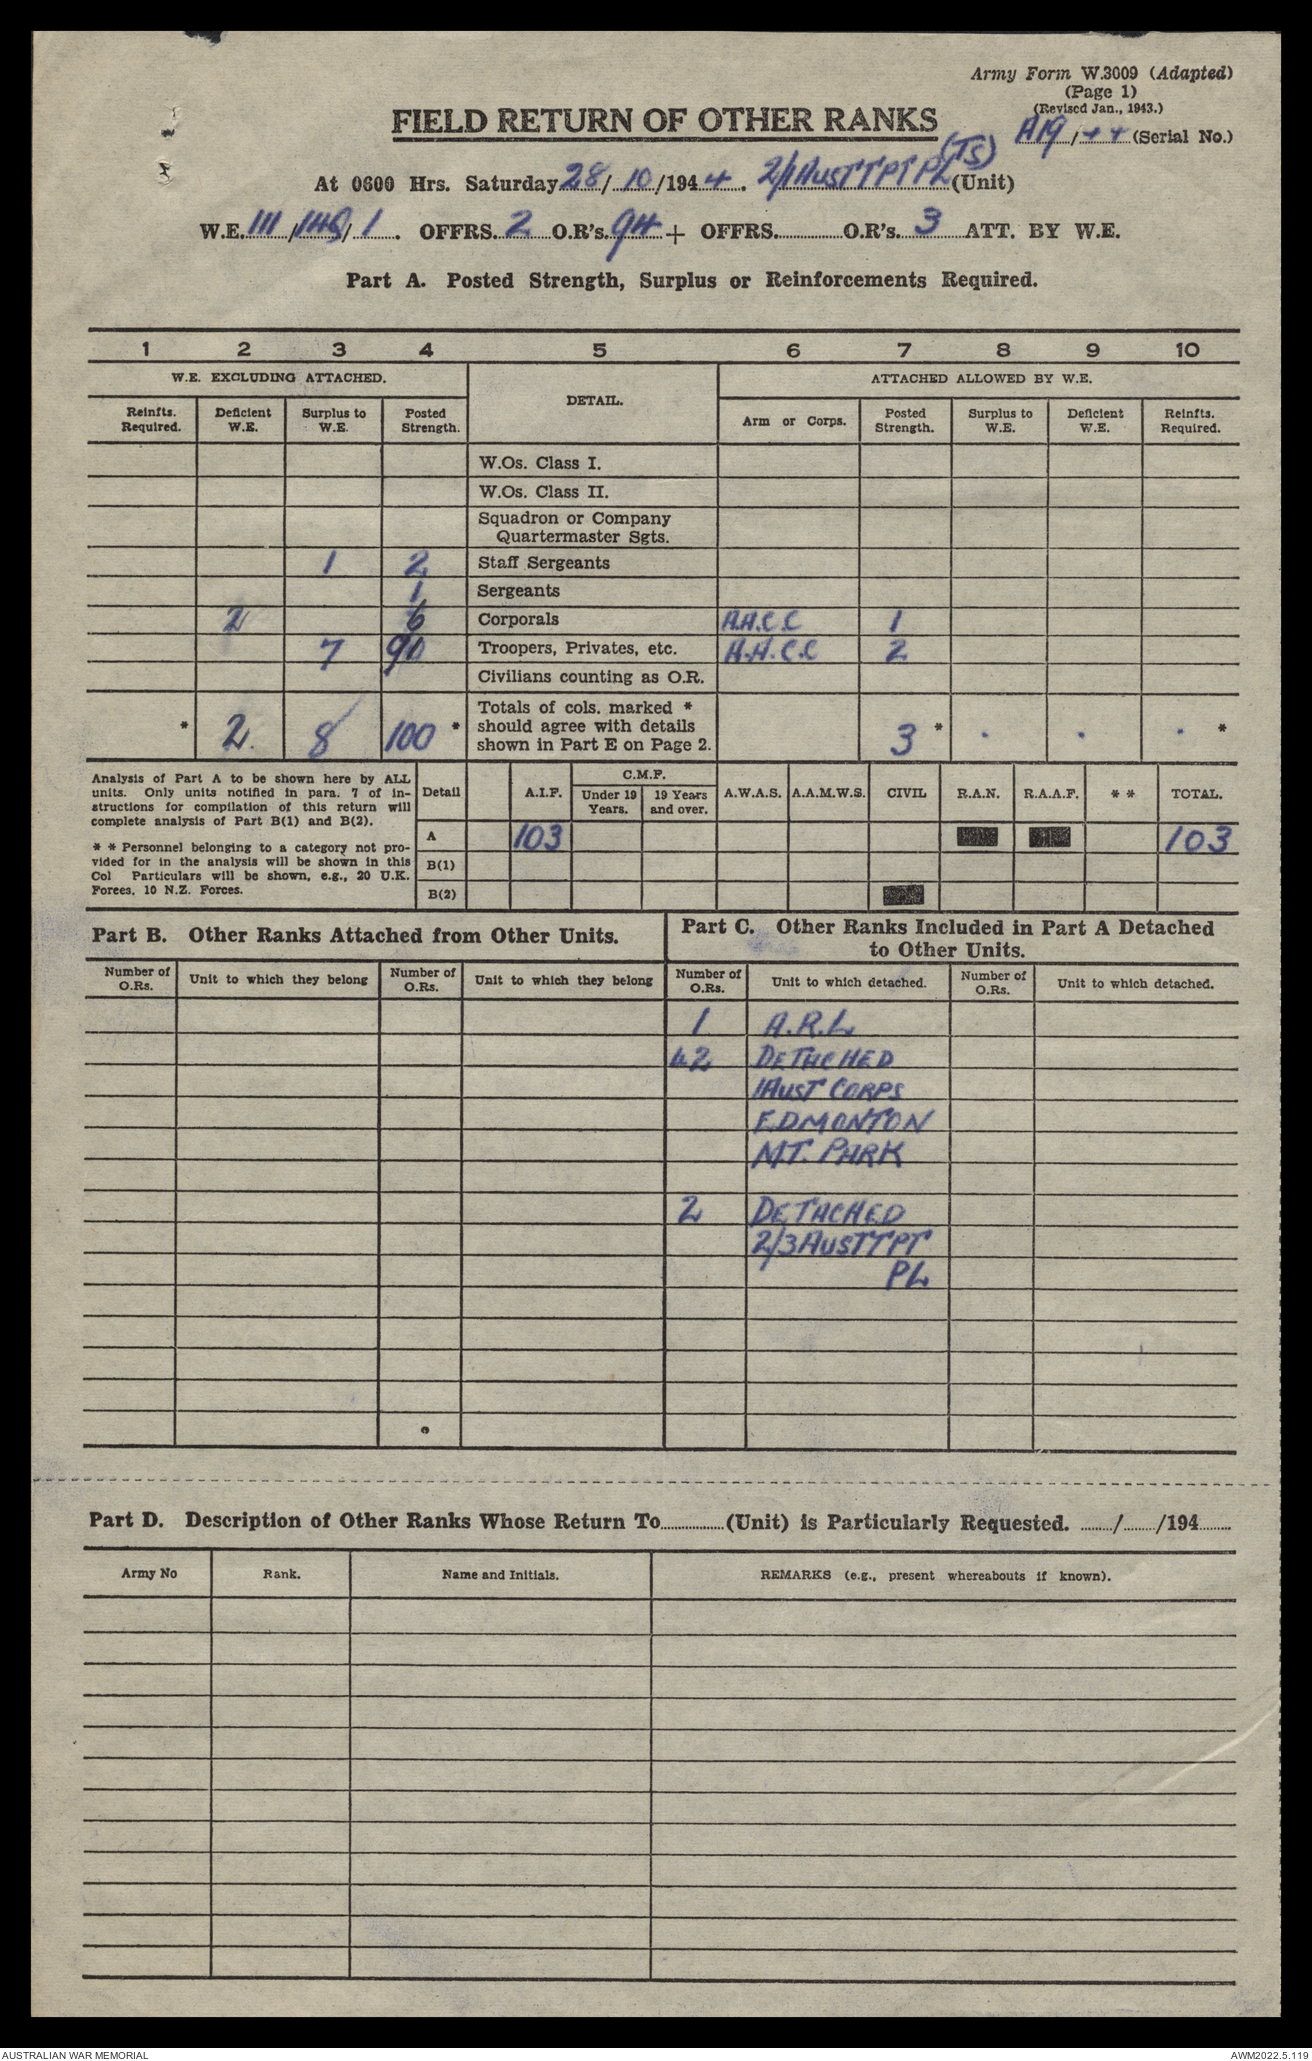 Army Form W.3009 (Adapted)
(Page 1)
(Revised Jan., 1943.)
FIELD RETURN OF OTHER RANKS
A19/44 (Serial No.)
At 0600 Hrs. Saturday 28/10/1944. 2/1 AUST TPT PL (TS) (Unit)
W.E. 111/149/1. OFFRS. 2 O.R's. 94 + OFFRS. O.R's. 3 ATT. BY W.E.
Part A. Posted Strength, Surplus or Reinforcements Required.
1 2 3 4 5 6 7 8 9 10
W.E. EXCLUDING ATTACHED. DETAIL. ATTACHED ALLOWED BY W.E.
Reinfts. Required. Deficient W.E. Surplus to W.E. Posted Strength. Arm or Corps. Posted Strength. Surplus to W.E. Deficient W.E. Reinfts. Required.
W.Os. Class I.
W.Os. Class II.
Squadron or Company
Quartermaster Sgts.
1 2 Staff Sergeants
1 Sergeants
2 6 Corporals A.A.C.C 1
7 90 Troopers, Privates, etc. A.A.C.C 2
Civilians counting as O.R.
Totals of cols. marked *
* 2. 8 100 * should agree with details 3 * . . . *
shown in Part E on Page 2.
Analysis of Part A to be shown here by ALL
units. Only units notified in para. 7 of in-
structions for compilation of this return will
complete analysis of Part B(1) and B(2).
* * Personnel belonging to a category not pro-
vided for in the analysis will be shown in this
Col Particulars will be shown, e.g., 20 U.K.
Forces, 10 N.Z. Forces.
Detail A.I.F. C.M.F. Under 19 Years. 19 Years and over. A.W.A.S. A.A.M.W.S. CIVIL R.A.N. R.A.A.F. * * TOTAL.
A 103 103
B(1)
B(2)
Part B. Other Ranks Attached from Other Units.
Part C. Other Ranks Included in Part A Detached
to Other Units.
Number of O.Rs. Unit to which they belong Number of O.Rs. Unit to which they belong Number of O.Rs. Unit to which detached. Number of O.Rs. Unit to which detached.
1 A.R.L
42 DETACHED
1 AUST CORPS
EDMONTON
M.T. PARK
2 DETACHED
2/3 AUST TPT
PL
Part D. Description of Other Ranks Whose Return To (Unit) is Particularly Requested. / /194
Army No Rank. Name and Initials. REMARKS (e.g., present whereabouts if known).
AUSTRALIAN WAR MEMORIAL AWM2022.5.119